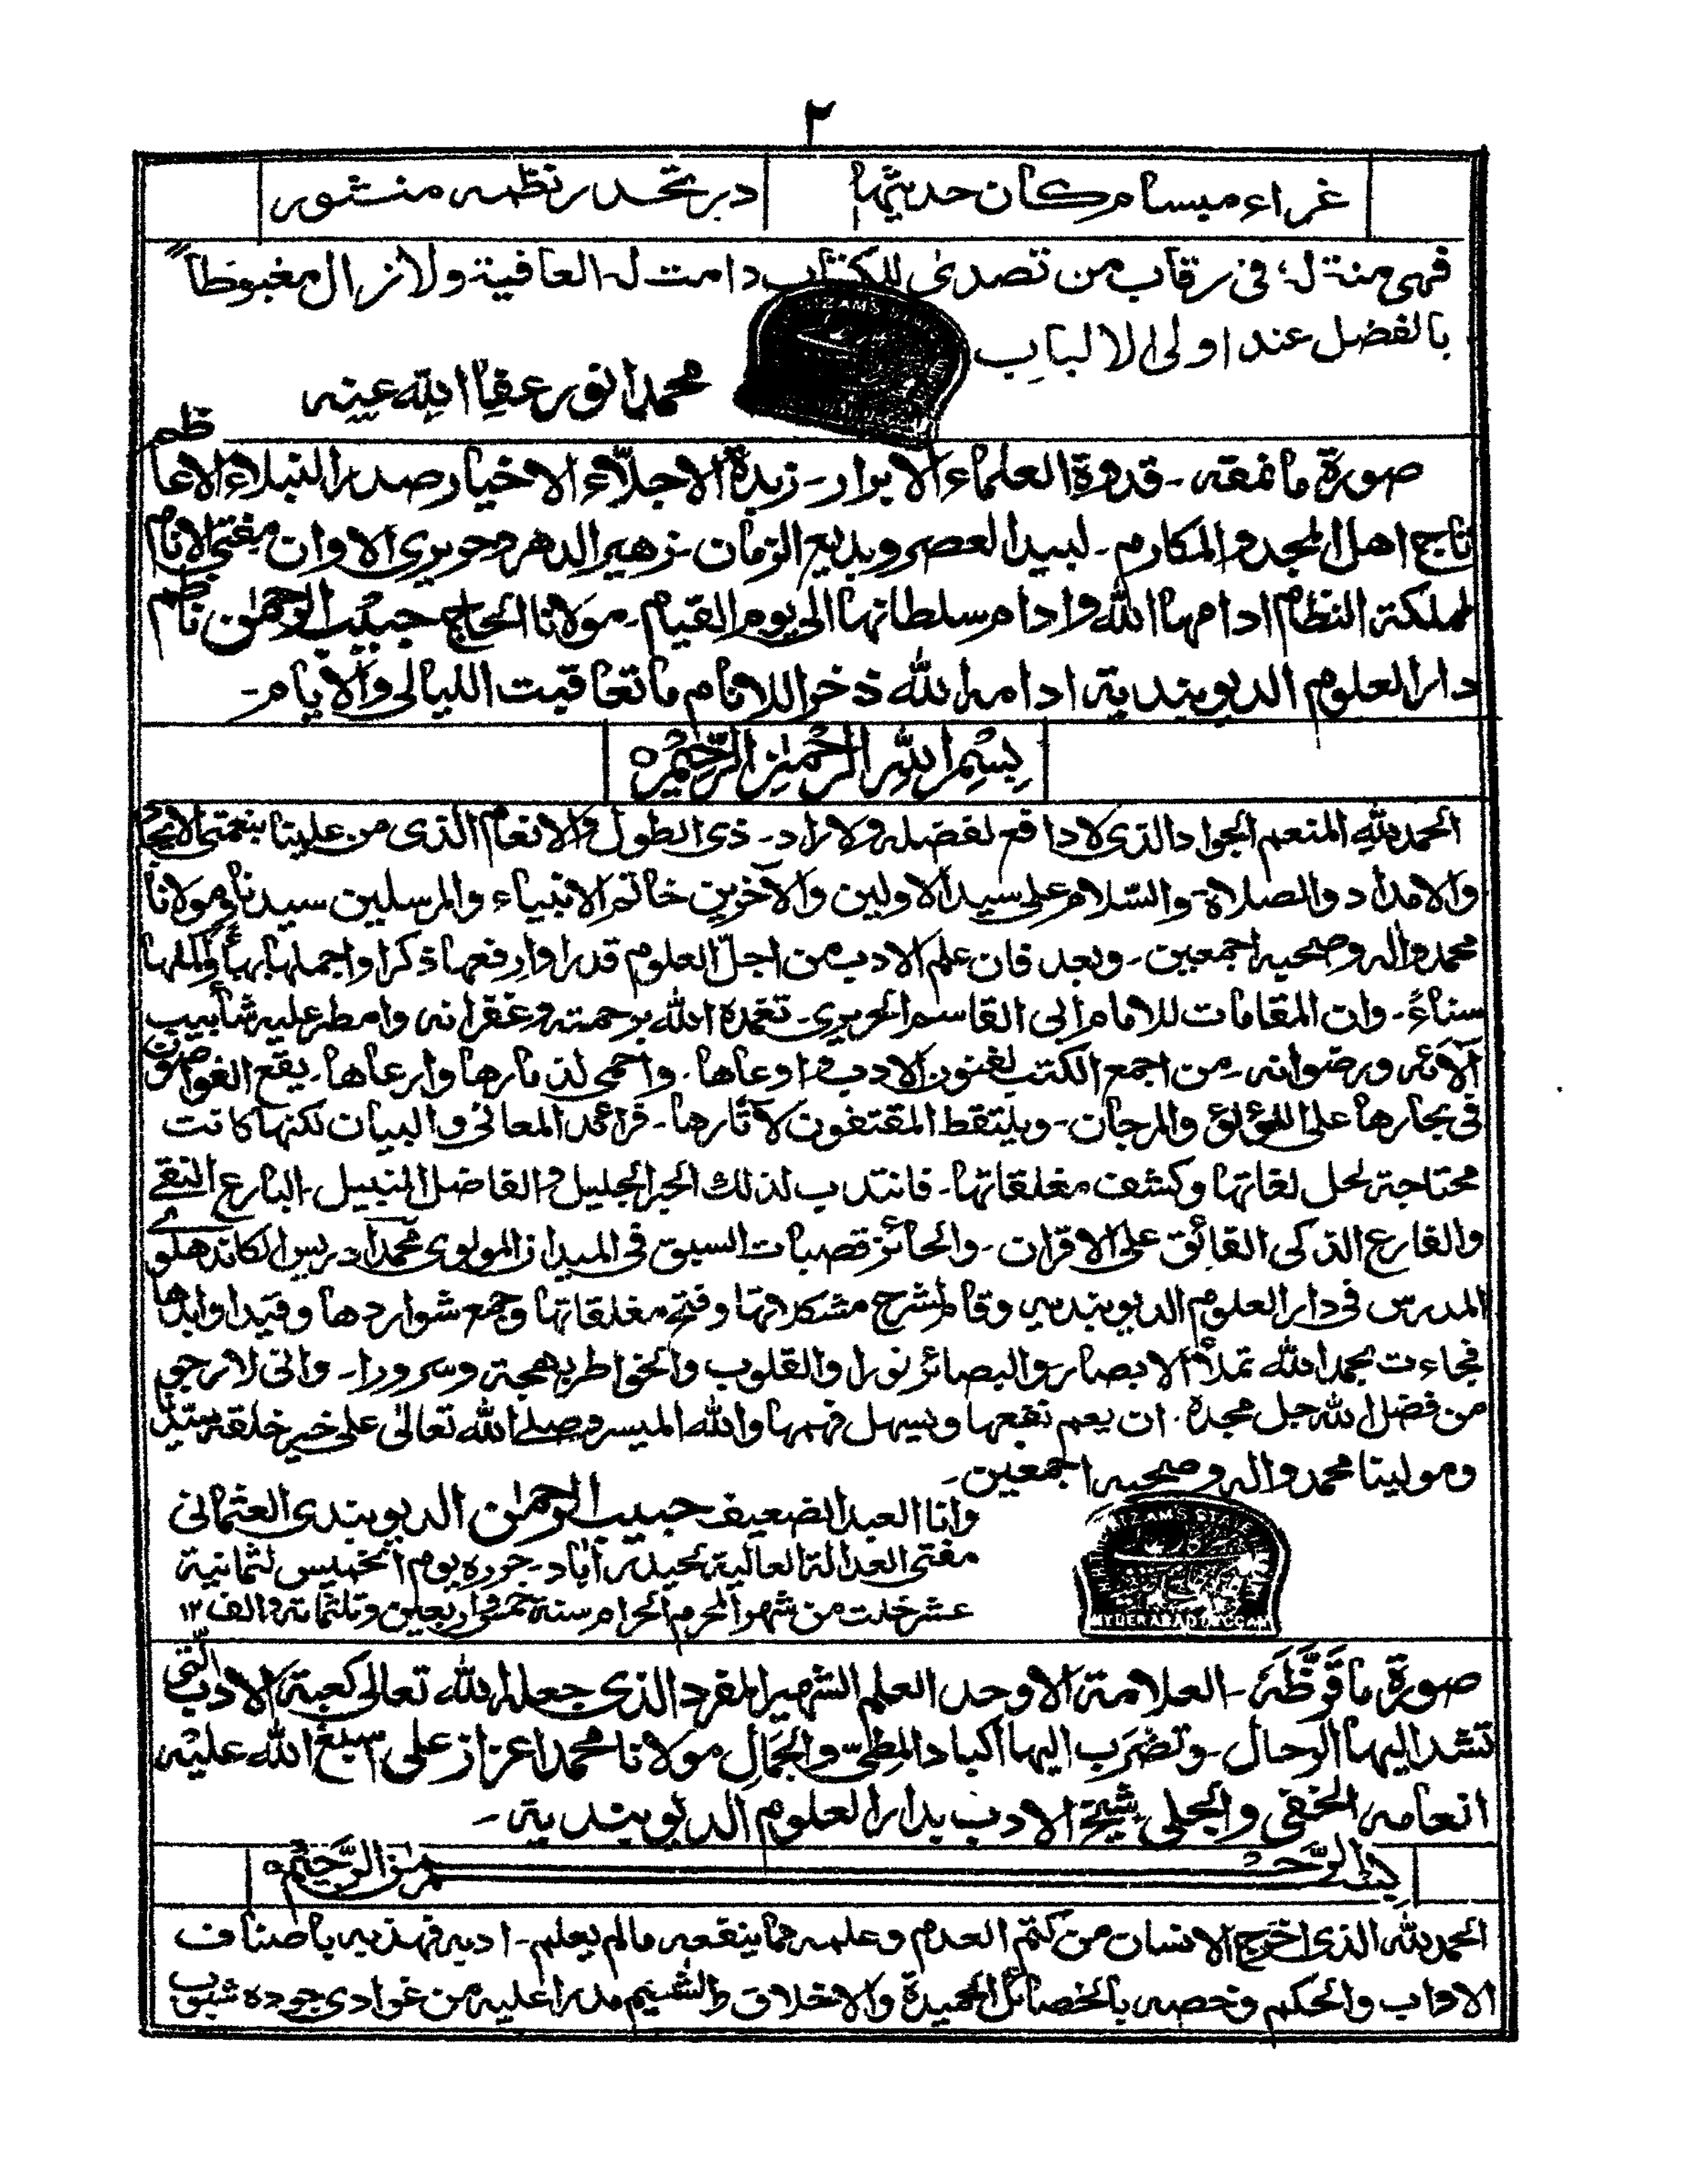 ٢
غراء مبسام كان حديثها در تحدر نظمه منثور
فهى منة له فى رقاب من تصدى للكتاب دامت له العافية ولا زال مغبوطاً
بالفضل عند اولى الالباب
محمد انور عفا الله عنه
صورة ما نمقه - قدوة العلماء الابرار - زبدة الاجلاء الاخيار صدر النبلاء الاعاظم
تاج اهل المجد والمكارم - لبيد العصر وبديع الزمان - زهير الدهر وحريرى الاوان مفتى الانام
لمملكة النظام ادامها الله وادام سلطانها الى يوم القيام - مولانا الحاج حبيب الرحمٰن ناظم
دار العلوم الديوبندية ادامه الله ذخرا للانام ما تعاقبت الليالى والايام -
بِسْمِ اللهِ الرَّحْمٰنِ الرَّحِيْمِ ٥
الحمد لله المنعم الجواد الذى لا دافع لفضله ولا راد - ذى الطول والانعام الذى من علينا بنعمتى الايجاد
والامداد والصلاة والسلام على سيد الاولين والآخرين خاتم الانبياء والمرسلين سيدنا ومولانا
محمد واله وصحبه اجمعين - وبعد فان علم الادب من اجل العلوم قدرا وارفعها ذكرا واجملها بهاءً واكملها
سناءً - وان المقامات للامام ابى القاسم الحريرى - تغمده الله برحمته وغفرانه وامطر عليه شآبيب
آلائه ورضوانه - من اجمع الكتب لفنون الادب واوعاها - واحمى لذمارها وارعاها - يقع الغواصون
فى بحارها على اللؤلؤ والمرجان - ويلتقط المقتفون لآثارها - فرائد المعانى والبيان لكنها كانت
محتاجة لحل لغاتها وكشف مغلقاتها - فانتدب لذلك الحبر الجليل والفاضل النبيل - البارع التقى
والفارع الذكى الفائق على الاقران - والحائز قصبات السبق فى الميدان المولوى محمد ادريس الكاندهلوى
المدرس فى دار العلوم الديوبندية وقام لشرح مشكلاتها وفتح مغلقاتها وجمع شواردها وقيد اوابدها
فجاءت بحمد الله تملأ الابصار والبصائر نورا والقلوب والخواطر بهجة وسرورا - وانى لارجو
من فضل الله جل مجده ان يعم نفعها ويسهل فهمها والله الميسر وصلى الله تعالى على خير خلقه سيدنا
ومولينا محمد واله وصحبه اجمعين -
وانا العبد الضعيف حبيب الرحمٰن الديوبندى العثمانى
مفتى العدالة العالية بحيدر آباد - حرره يوم الخميس لثمانية
عشر خلت من شهر المحرم الحرام سنة خمس واربعين وثلثمائة والف ١٢
صورة ما قَرَّظَهُ - العلامة الاوحد العلم الشهير المفرد الذى جعله الله تعالى كعبة الادب التى
تشد اليها الرحال - وتضرب اليها اكباد المطى والجمال مولانا محمد اعزاز على اسبغ الله عليه
انعامه الخفى والجلى شيخ الادب بدار العلوم الديوبندية -
بسم الله الرحمٰن الرَّحِيْمِ ٥
الحمد لله الذى اخرج الانسان من كتم العدم وعلمه مما ينفعه ما لم يعلم - ادبه فهذبه باصناف
الاداب والحكم وخصه بالخصائل الحميدة والاخلاق والشيم مدرا عليه من غوادى جوده شبوب